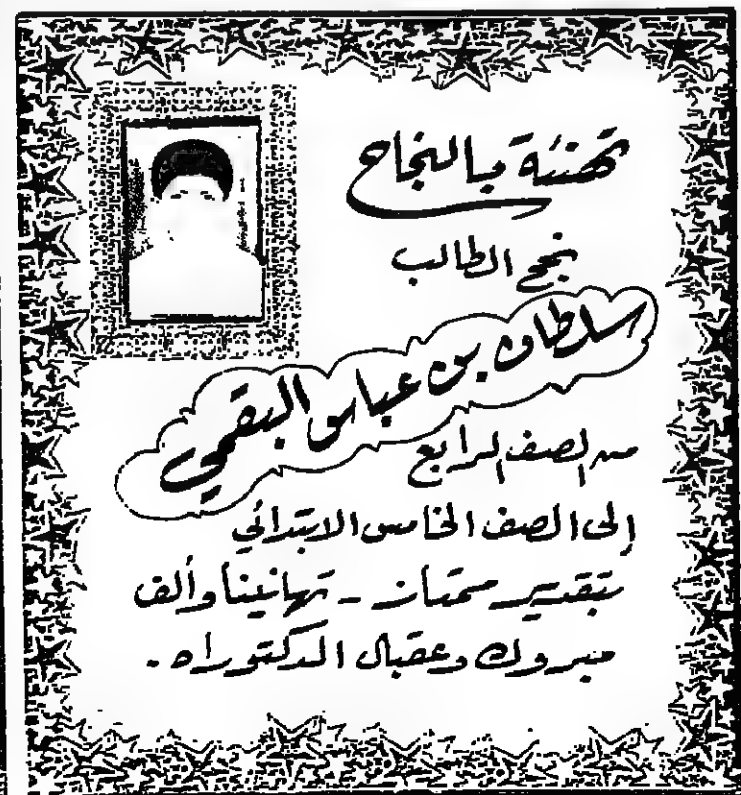 تهنئة بالنجاح
نجح الطالب
سلطان بن عباس البقمي
من الصف الرابع
إلى الصف الخامس الابتدائي
بتقدير ممتاز - تهانينا وألف
مبروك وعقبال الدكتوراه .